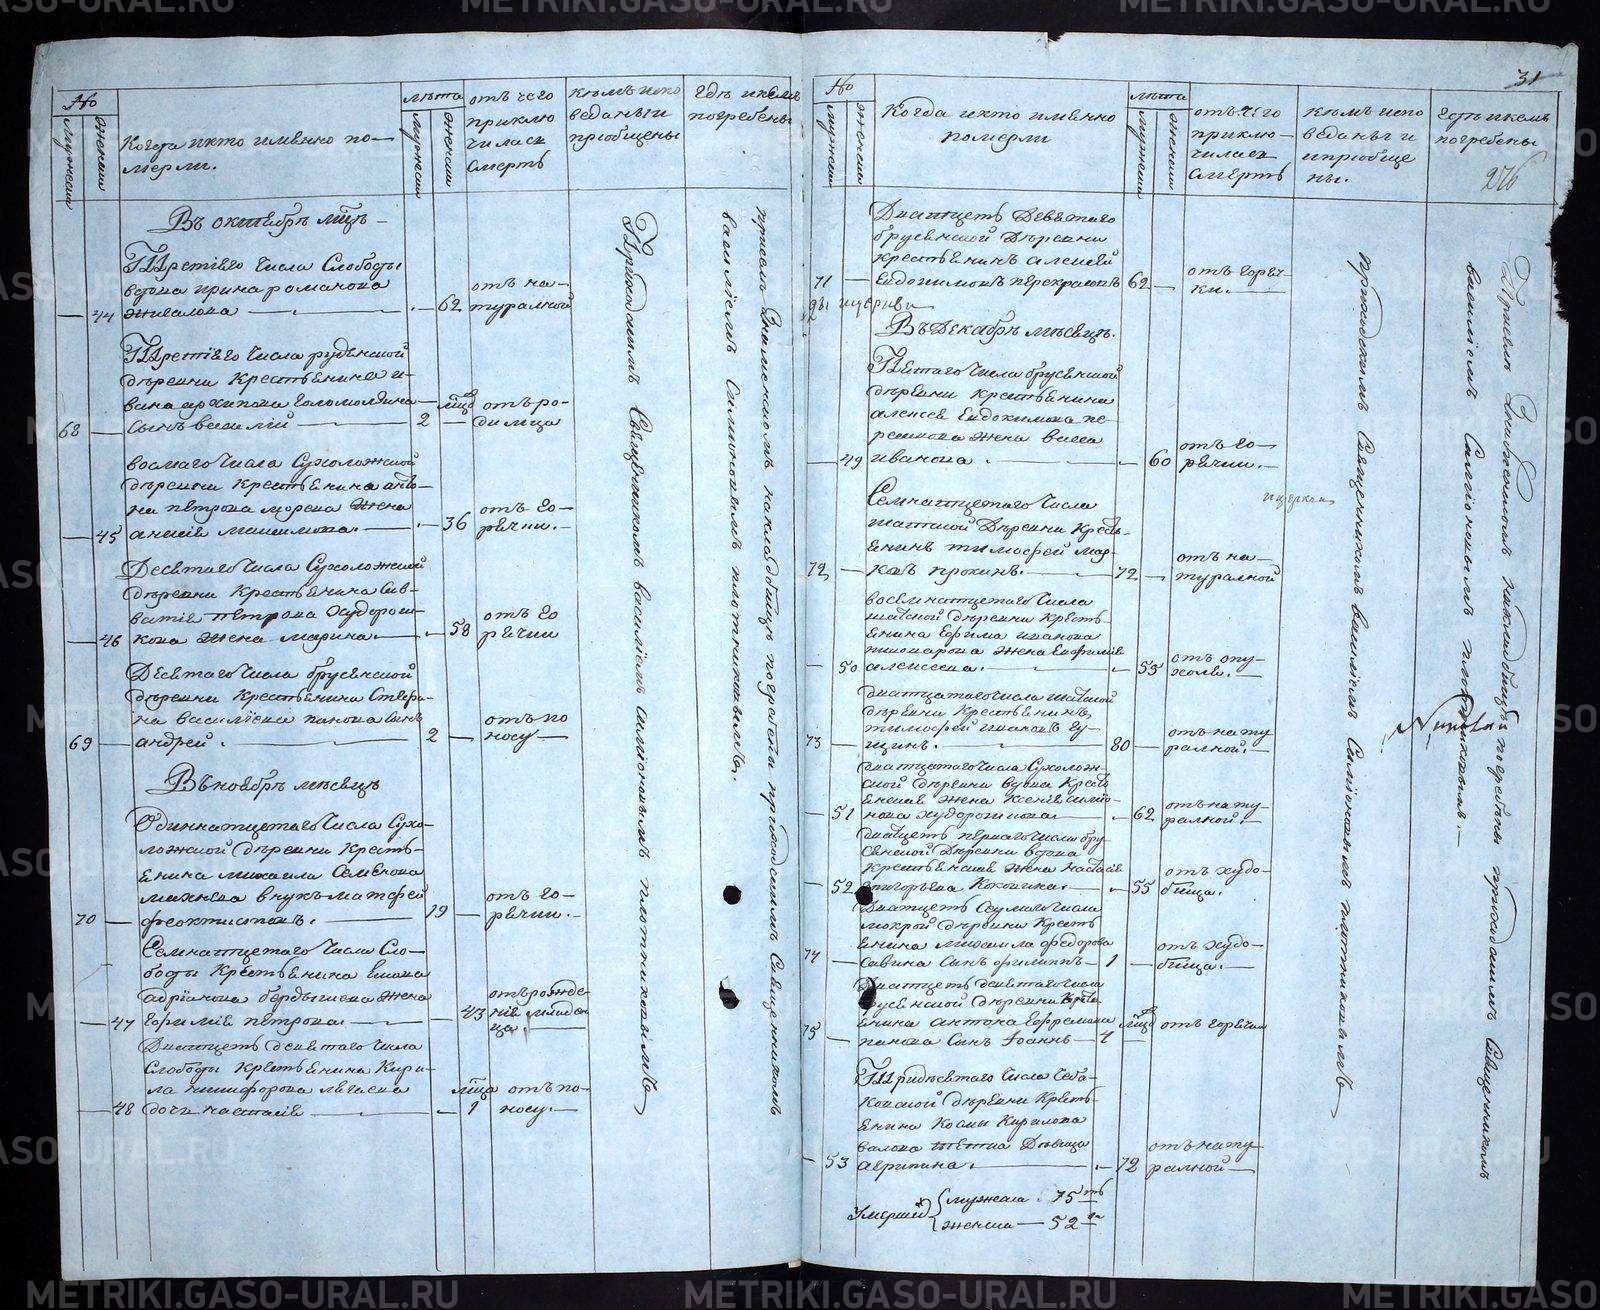 METRIKI.GASO-URAL.RU
№
мужеска
женска
Когда и кто имянно по-
мерли.
лѣта
мужеска
женска
отъ чего
приклю
чилась
смерть
кѣмъ испо
веданы и
приобщены
гдѣ и кемъ
погребены
Въ октябрѣ мцѣ
44
Третiего числа Слободы
вдова ирина романова
62
отъ на-
туралной
68
Третiего числа рудянской
дѣревни Крестьянина и-
вана архипова голомолзина
сынъ василiй
2
отъ ро-
димца
45
восмаго числа Сухоложской
дѣревни Крестьянина анто-
на петрова морева жена
анисiя максимова.
36
отъ го-
рячки.
46
Десятаго числа Сухоложской
дѣревни Крестьянина сав-
ватiя петрова худорош-
кова жена марина.
58
отъ го
рячки
69
Десятаго числа брусянской
дѣревни Крестьянина Стефа-
на василiева панова сынъ
андрей.
2
отъ по
носу
Въ ноябрѣ мѣсяцѣ
70
Одиннатцатаго числа Сухо-
ложской дѣревни Кресть-
янина михаила Семенова
внукъ матфей
феоктистовъ.
19
отъ го-
рячки.
47
Семнатцатаго числа Сло-
боды Крестьянина
адрiанова жена
Ефимiя петрова.
43
отъ рожде-
нiя младен
ца
48
Дватцеть девятаго числа
Слободы Крестьянина Кири-
ла никифорова
дочь настасiя
мцa
1
отъ по-
носу.
Приходскимъ Священникомъ василiемъ симiоновымъ плотниковымъ
при селѣ Знаменскомъ на кладбищѣ погребены приходскимъ Священникомъ
василiемъ Симионовымъ плотниковымъ.
31
276
№
мужеска
женска
Когда и кто имянно
померли
лѣта
мужеска
женска
отъ чего
приклю-
чилась
смерть
кѣмъ испо
веданы и
и приобще
ны.
гдѣ и кемъ
погребены
71
Дватцеть Девятаго
брусянской Дѣревни
крестьянинъ алексей
Евдокимовъ
62
отъ горяч-
ки.
Въ Декабрѣ мѣсяцѣ.
49
Пятаго числа брусянской
дѣревни Крестьянина
алексея Евдокимова
жена васса
иванова.
60
отъ го-
рячки.
72
Семнатцатаго числа
шатской Дѣревни Кресть-
янинъ тимофей мар-
ковъ
72
отъ на-
туралной
50
восемнатцатаго числа
шатской дѣревни Кресть-
янина Ефима иванова
жена Евфимiя
алексеева.
55
отъ опу-
холи.
73
дватцатаго числа шатской
дѣревни Крестьянинъ
тимофей ивановъ гу-
щинъ.
80
отъ нату
ралной.
51
дватцатаго числа Сухолож-
ской дѣревни вдова Кресть
янская жена Ксенiя симио-
нова худорошкова.
62
отъ нату-
ралной.
52
дватцеть перваго числа бру-
сянской Дѣревни вдова
Крестьянская жена настасiя
григорьева Коковина.
55
отъ худо-
бища.
74
Дватцеть Седмаго числа
мокрой дѣревни Кресть
янина михаила федорова
савина сынъ филиппъ
1
отъ худо-
бища.
75
Дватцеть девятаго числа
брусянской дѣревни Кресть
янина антона Ефремова
панова Сынъ Iоаннъ
отъ горячки
53
Тридесятаго числа
дѣревни Кресть-
янина Космы Кирилова
валова тетка Дѣвица
агрипина.
72
отъ нату
ралной
Умерших
мужеска 75ть
женска 52ва
и церкви
приходскимъ Священникомъ василiемъ Симiоновымъ плотниковымъ
при селѣ Знаменскомъ на кладбищѣ погребены приходскимъ Священникомъ
василiемъ Симионовымъ плотниковымъ.
METRIKI.GASO-URAL.RU